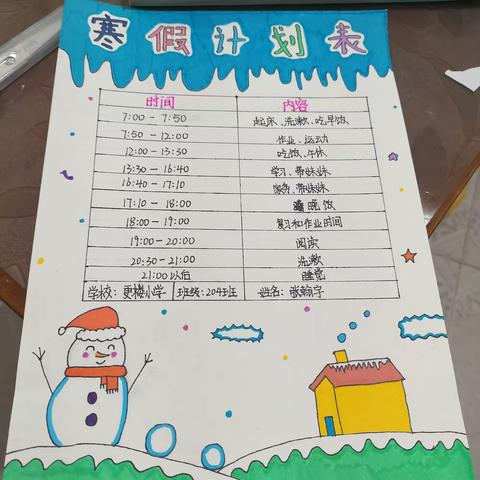 寒假计划表
时间 内容
7:00 - 7:50 起床、洗漱、吃早饭
7:50 - 12:00 作业、运动
12:00 - 13:30 吃饭、午休
13:30 - 16:40 学习、带妹妹
16:40 - 17:10 家务、带妹妹
17:10 - 18:00 晚饭
18:00 - 19:00 复习和作业时间
19:00 - 20:00 阅读
20:30 - 21:00 洗漱
21:00以后 睡觉
学校: 更楼小学 班级: 204班 姓名: 张翰宇